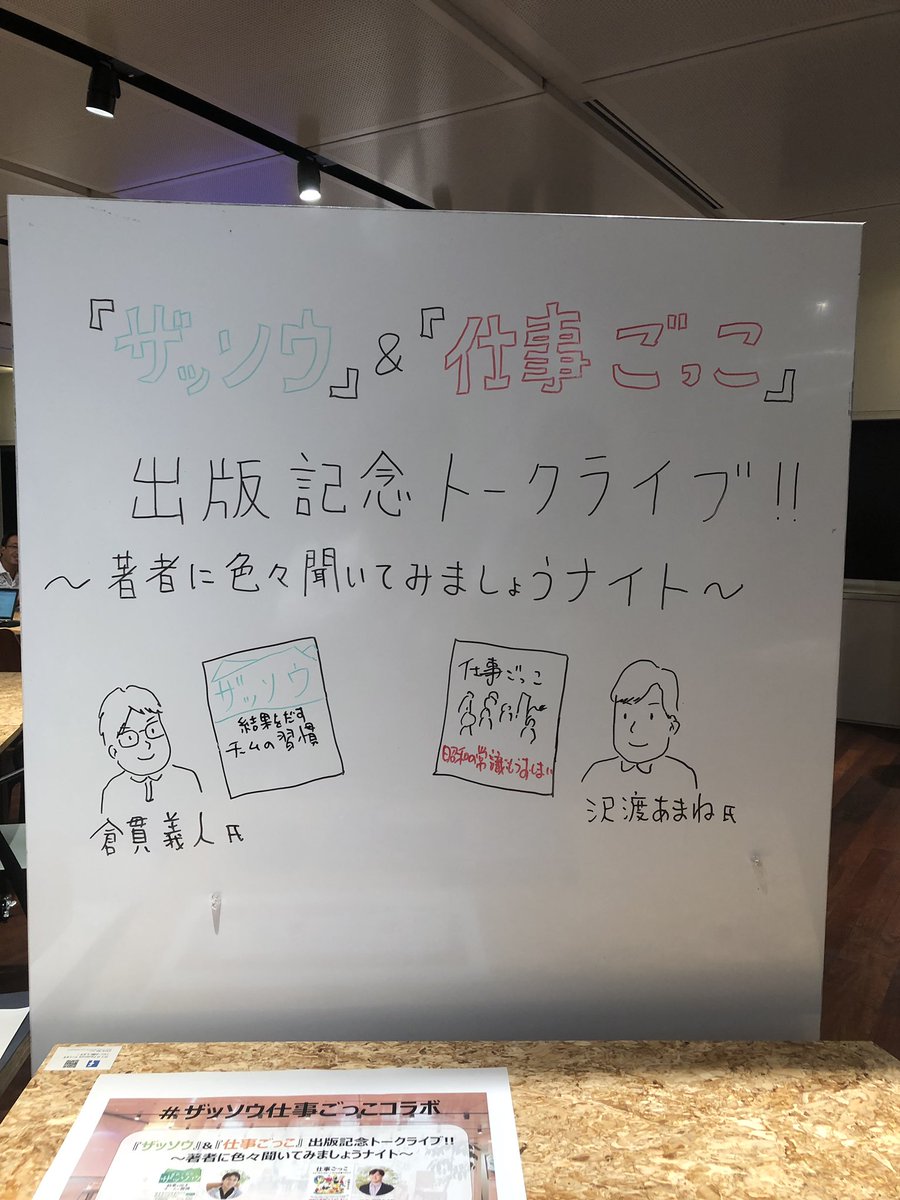 『ザッソウ』&『仕事ごっこ』
出版記念トークライブ!!
～著者に色々聞いてみましょうナイト～
ザッソウ
結果をだす
チームの習慣
倉貫義人氏
仕事ごっこ
昭和の常識もうおしまい
沢渡あまね氏
#ザッソウ仕事ごっこコラボ
『ザッソウ』&『仕事ごっこ』出版記念トークライブ!!
～著者に色々聞いてみましょうナイト～
仕事ごっこ